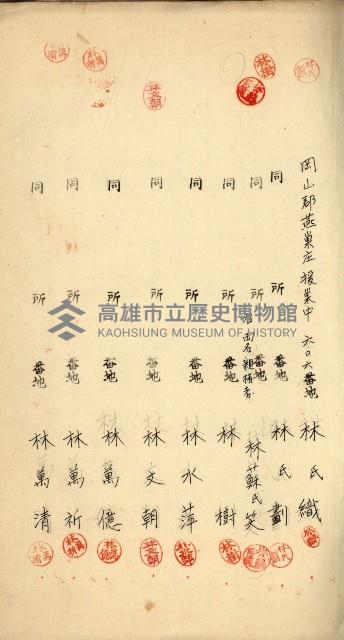 岡山郡燕巢庄援巢中六〇六番地 林氏織
同 所 番地 林氏劃
同 所 番地 林蘇氏笑
右兩名親權者
同 所 番地 林樹
同 所 番地 林水萍
同 所 番地 林文朝
同 所 番地 林萬億
同 所 番地 林萬祈
同 所 番地 林萬清
高雄市立歷史博物館
KAOHSIUNG MUSEUM OF HISTORY